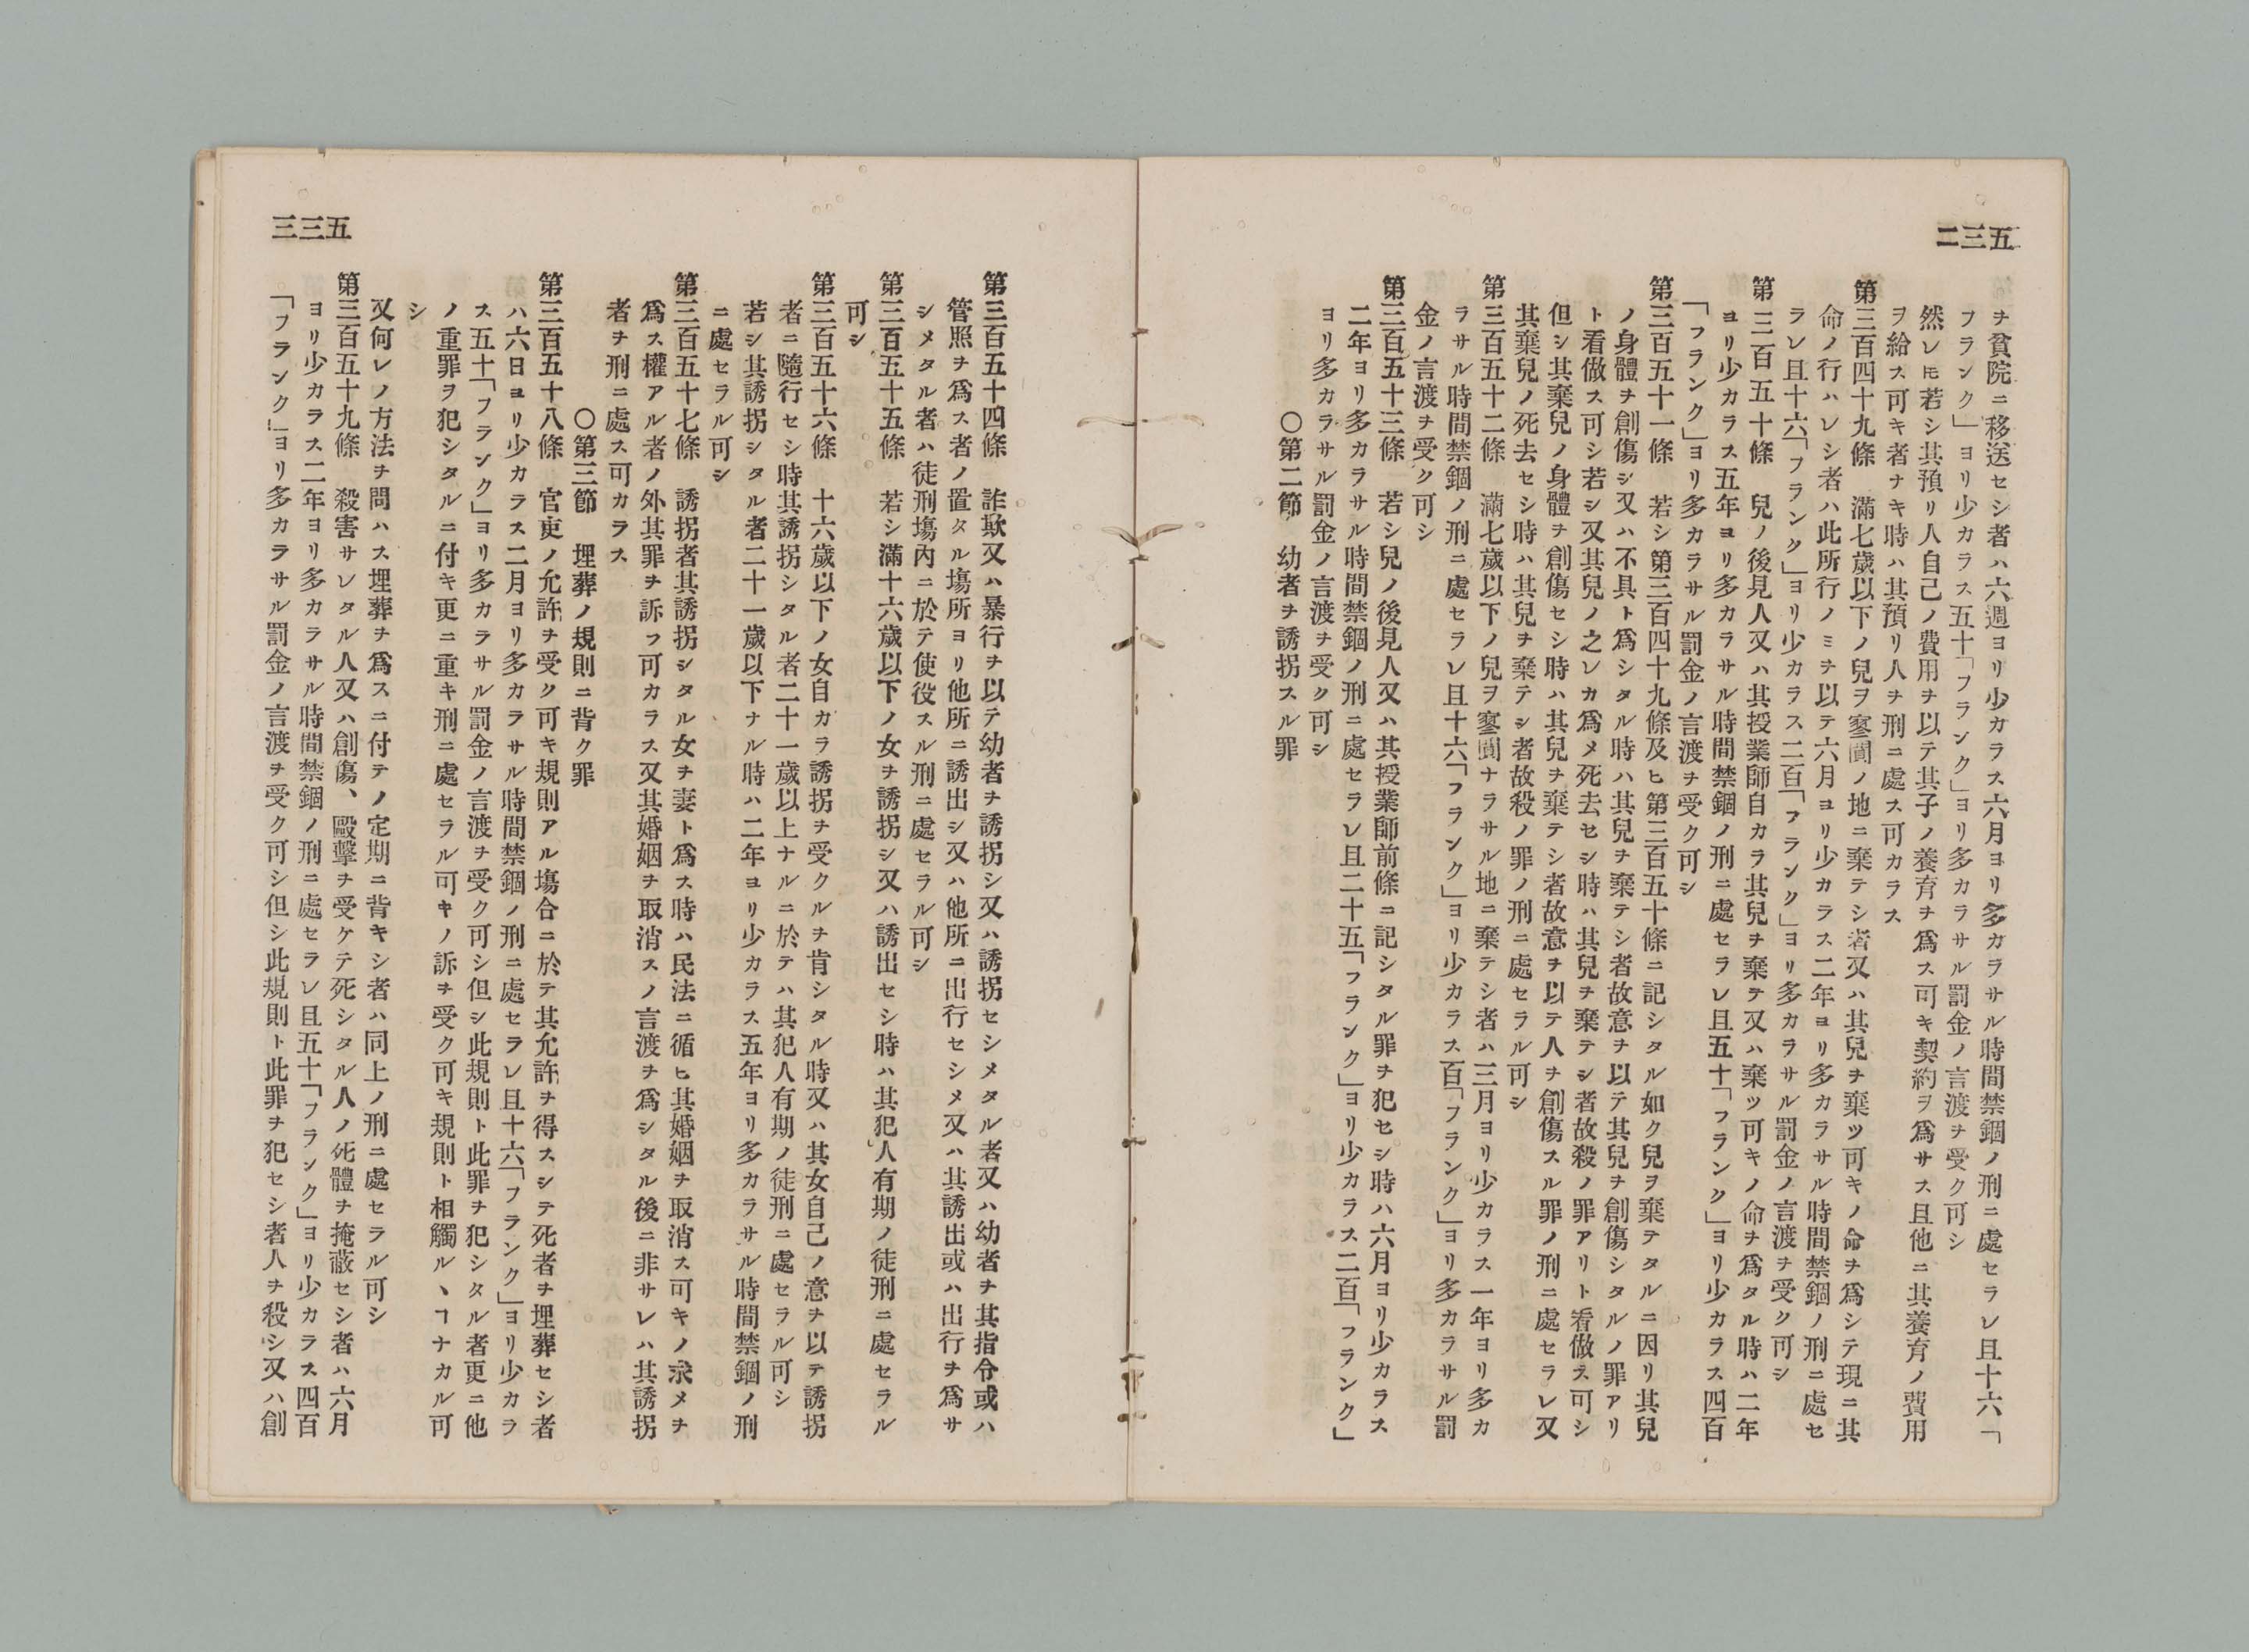 五三二
ヲ貧院ニ移送セシ者ハ六週ヨリ少カラス六月ヨリ多カラサル時間禁錮ノ刑ニ處セラレ且十六「
フランク」ヨリ少カラス五十「フランク」ヨリ多カラサル罰金ノ言渡ヲ受ク可シ
然レ𪜈若シ其預リ人自己ノ費用ヲ以テ其子ノ養育ヲ爲ス可キ契約ヲ爲サス且他ニ其養育ノ費用
ヲ給ス可キ者ナキ時ハ其預リ人ヲ刑ニ處ス可カラス
第三百四十九條 滿七歲以下ノ兒ヲ寥闃ノ地ニ棄テシ者又ハ其兒ヲ棄ツ可キノ命ヲ爲シテ現ニ其
命ノ行ハレシ者ハ此所行ノミヲ以テ六月ヨリ少カラス二年ヨリ多カラサル時間禁錮ノ刑ニ處セ
ラレ且十六「フランク」ヨリ少カラス二百「フランク」ヨリ多カラサル罰金ノ言渡ヲ受ク可シ
第三百五十條 兒ノ後見人又ハ其授業師自カラ其兒ヲ棄テ又ハ棄ツ可キノ命ヲ爲タル時ハ二年
ヨリ少カラス五年ヨリ多カラサル時間禁錮ノ刑ニ處セラレ且五十「フランク」ヨリ少カラス四百
「フランク」ヨリ多カラサル罰金ノ言渡ヲ受ク可シ
第三百五十一條 若シ第三百四十九條及ヒ第三百五十條ニ記シタル如ク兒ヲ棄テタルニ因リ其兒
ノ身體ヲ創傷シ又ハ不具ト爲シタル時ハ其兒ヲ棄テシ者故意ヲ以テ其兒ヲ創傷シタルノ罪アリ
ト看做ス可シ若シ又其兒ノ之レカ爲メ死去セシ時ハ其兒ヲ棄テシ者故殺ノ罪アリト看做ス可シ
但シ其棄兒ノ身體ヲ創傷セシ時ハ其兒ヲ棄テシ者故意ヲ以テ人ヲ創傷スル罪ノ刑ニ處セラレ又
其棄兒ノ死去セシ時ハ其兒ヲ棄テシ者故殺ノ罪ノ刑ニ處セラル可シ
第三百五十二條 滿七歲以下ノ兒ヲ寥闃ナラサル地ニ棄テシ者ハ三月ヨリ少カラス一年ヨリ多カ
ラサル時間禁錮ノ刑ニ處セラレ且十六「フランク」ヨリ少カラス百「フランク」ヨリ多カラサル罰
金ノ言渡ヲ受ク可シ
第三百五十三條 若シ兒ノ後見人又ハ其授業師前條ニ記シタル罪ヲ犯セシ時ハ六月ヨリ少カラス
二年ヨリ多カラサル時間禁錮ノ刑ニ處セラレ且二十五「フランク」ヨリ少カラス二百「フランク」
ヨリ多カラサル罰金ノ言渡ヲ受ク可シ
〇第二節 幼者ヲ誘拐スル罪
五三三
第三百五十四條 詐欺又ハ暴行ヲ以テ幼者ヲ誘拐シ又ハ誘拐セシメタル者又ハ幼者ヲ其指令或ハ
管照ヲ爲ス者ノ置タル塲所ヨリ他所ニ誘出シ又ハ他所ニ出行セシメ又ハ其誘出或ハ出行ヲ爲サ
シメタル者ハ徒刑塲內ニ於テ使役スル刑ニ處セラル可シ
第三百五十五條 若シ滿十六歲以下ノ女ヲ誘拐シ又ハ誘出セシ時ハ其犯人有期ノ徒刑ニ處セラル
可シ
第三百五十六條 十六歲以下ノ女自カラ誘拐ヲ受クルヲ肯シタル時又ハ其女自己ノ意ヲ以テ誘拐
者ニ隨行セシ時其誘拐シタル者二十一歲以上ナルニ於テハ其犯人有期ノ徒刑ニ處セラル可シ
若シ其誘拐シタル者二十一歲以下ナル時ハ二年ヨリ少カラス五年ヨリ多カラサル時間禁錮ノ刑
ニ處セラル可シ
第三百五十七條 誘拐者其誘拐シタル女ヲ妻ト爲ス時ハ民法ニ循ヒ其婚姻ヲ取消ス可キノ求メヲ
爲ス權アル者ノ外其罪ヲ訴フ可カラス又其婚姻ヲ取消スノ言渡ヲ爲シタル後ニ非サレハ其誘拐
者ヲ刑ニ處ス可カラス
〇第三節 埋葬ノ規則ニ背ク罪
第三百五十八條 官吏ノ允許ヲ受ク可キ規則アル塲合ニ於テ其允許ヲ得スシテ死者ヲ埋葬セシ者
ハ六日ヨリ少カラス二月ヨリ多カラサル時間禁錮ノ刑ニ處セラレ且十六「フランク」ヨリ少カラ
ス五十「フランク」ヨリ多カラサル罰金ノ言渡ヲ受ク可シ但シ此規則ト此罪ヲ犯シタル者更ニ他
ノ重罪ヲ犯シタルニ付キ更ニ重キ刑ニ處セラル可キノ訴ヲ受ク可キ規則ト相觸ル丶ヿナカル可
シ
又何レノ方法ヲ問ハス埋葬ヲ爲スニ付テノ定期ニ背キシ者ハ同上ノ刑ニ處セラル可シ
第三百五十九條 殺害サレタル人又ハ創傷、毆擊ヲ受ケテ死シタル人ノ死體ヲ掩蔽セシ者ハ六月
ヨリ少カラス二年ヨリ多カラサル時間禁錮ノ刑ニ處セラレ且五十「フランク」ヨリ少カラス四百
「フランク」ヨリ多カラサル罰金ノ言渡ヲ受ク可シ但シ此規則ト此罪ヲ犯セシ者人ヲ殺シ又ハ創